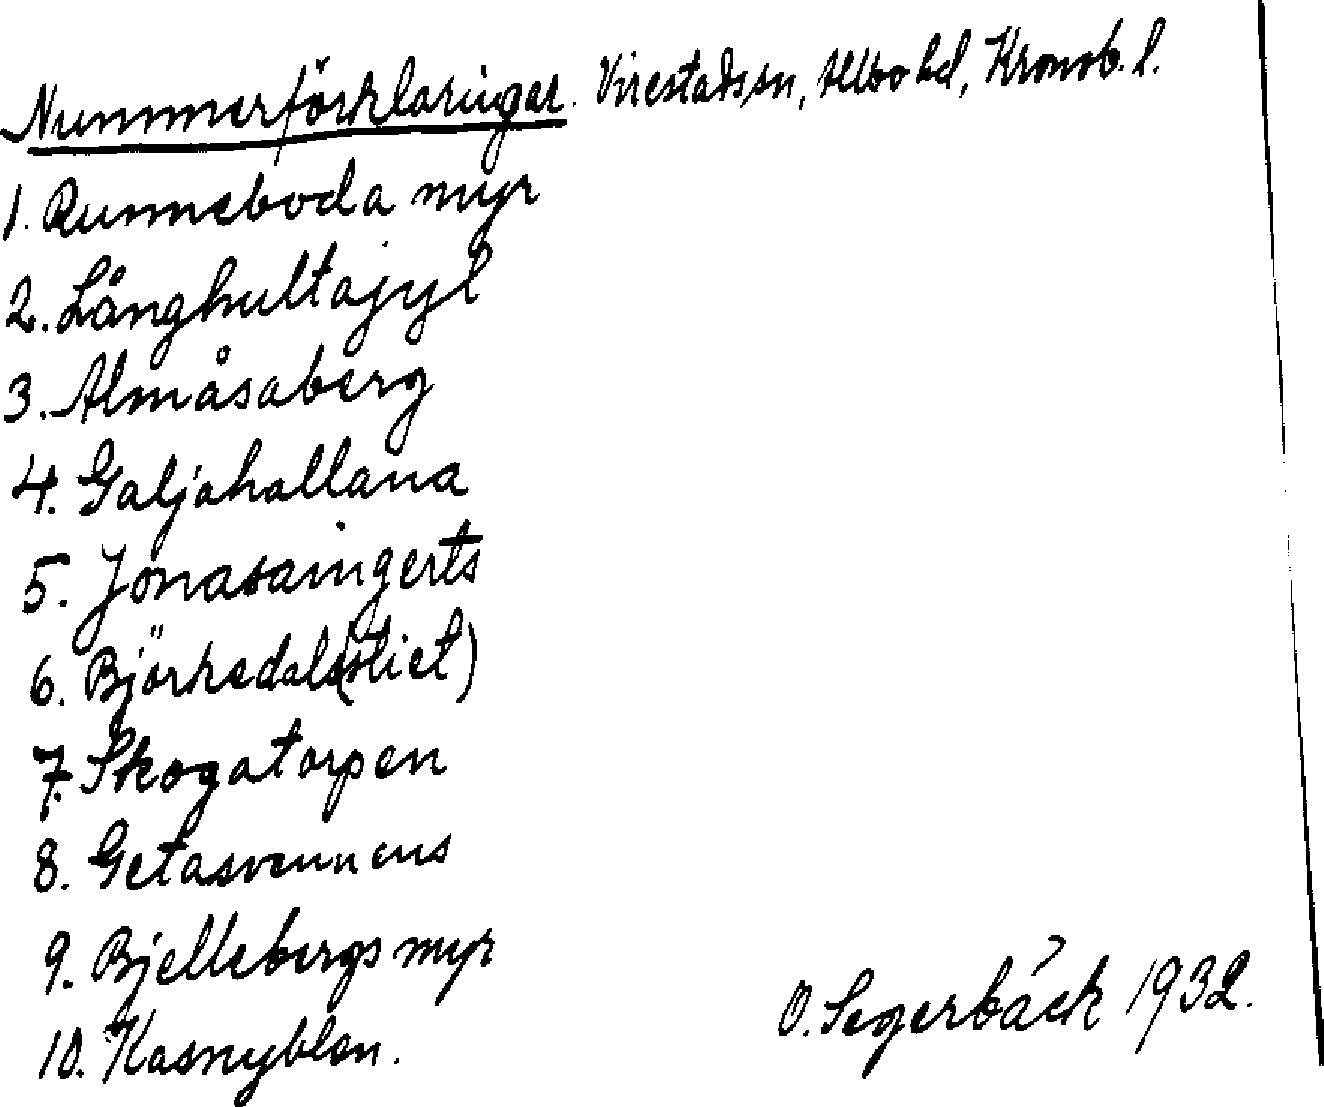 Nummerförklaringar. Virestads sn, Allbo hd, Kronob. l.
1. Runneboda myr
2. Långhultagyl
3. Almåsaberg
4. Galjahallana
5. Jonasaingerts
6. Björkedals(stiet)
7. Skogatorpen
8. Getasvennens
9. Bjellebergs myr
10. Kasnyblen.
O. Segerbäck 1932.